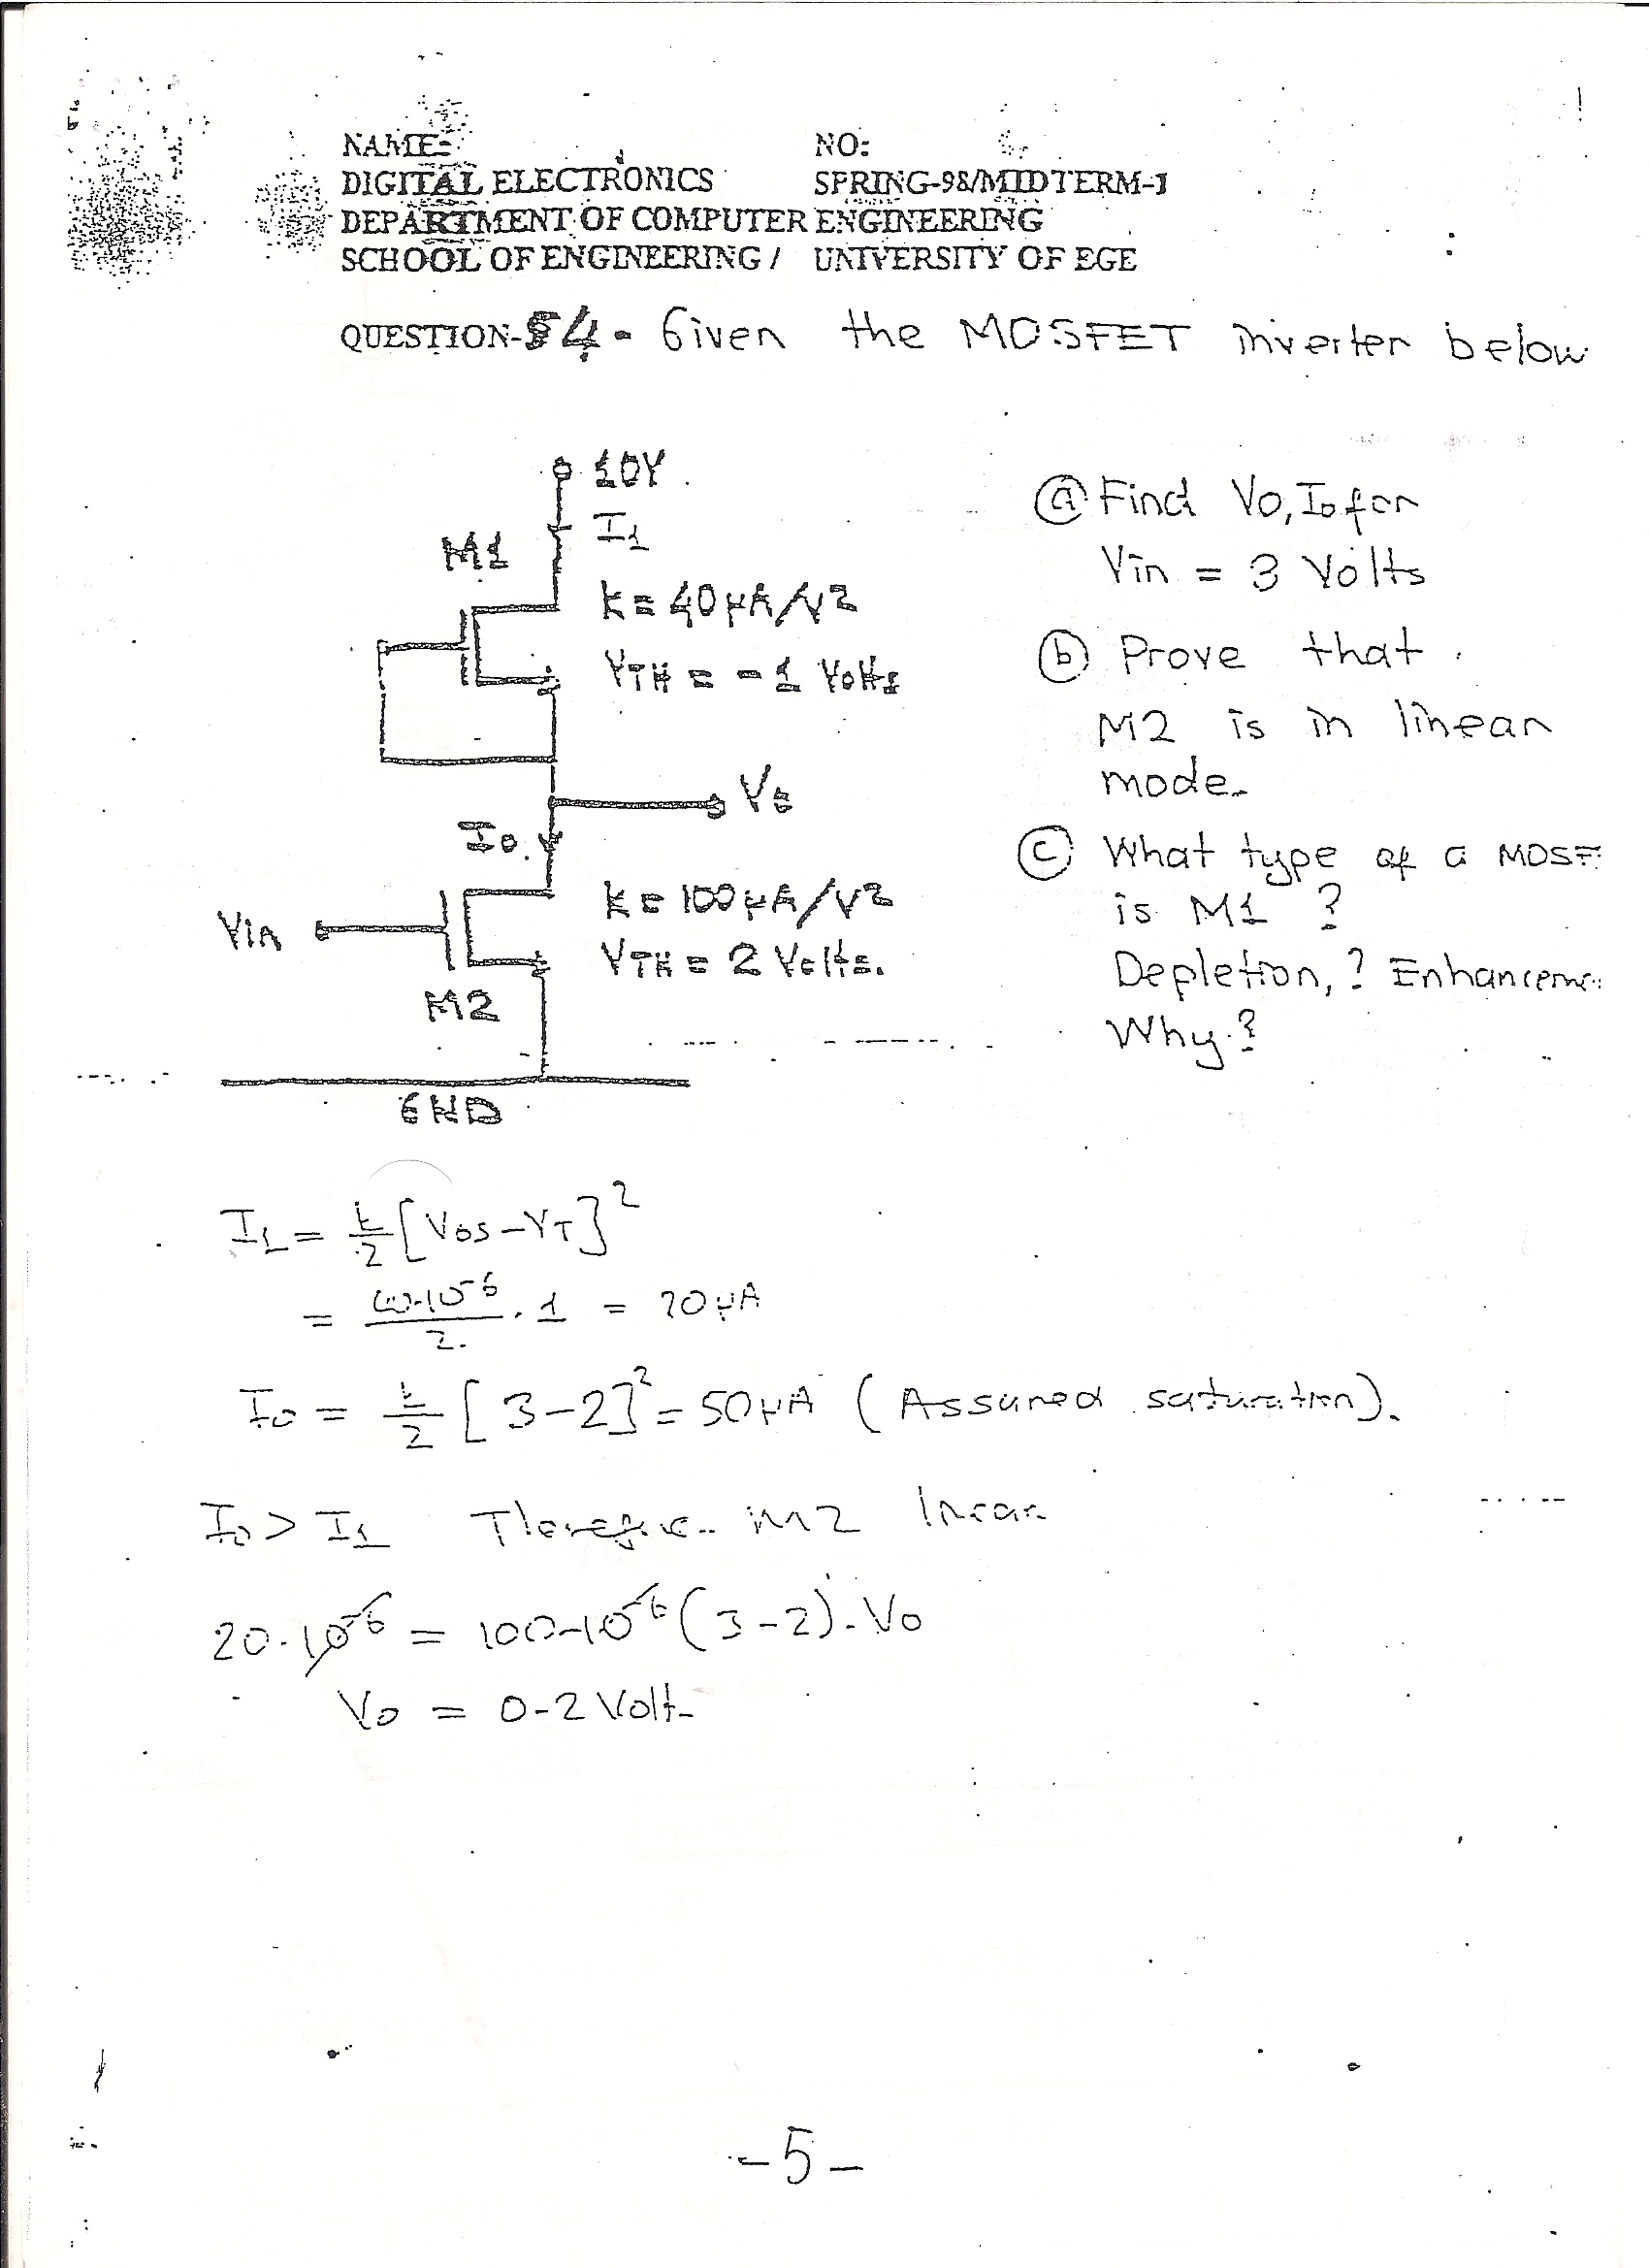 NAME: NO:
DIGITAL ELECTRONICS SPRING-98/MIDTERM-1
DEPARTMENT OF COMPUTER ENGINEERING
SCHOOL OF ENGINEERING / UNIVERSITY OF EGE
QUESTION-4- Given the MOSFET inverter below
10V
I1
M1
k = 40 µA/V2
VTH = -1 Volts
Vo
Io
k = 100 µA/V2
Vin
VTH = 2 Volts.
M2
GND
(a) Find Vo, Io for
Vin = 3 Volts
(b) Prove that
M2 is in linear
mode.
(c) What type of a MOSF
is M1 ?
Depletion, ? Enhanceme
Why ?
IL = k/2 [VGS - VT]2
= 40.10-6/2 . 1 = 20 µA
Io = k/2 [3-2]2 = 50 µA (Assumed saturation).
Io > I1 Therefore M2 linear
20.10-6 = 100.10-6 (3-2). Vo
Vo = 0.2 Volt.
-5-